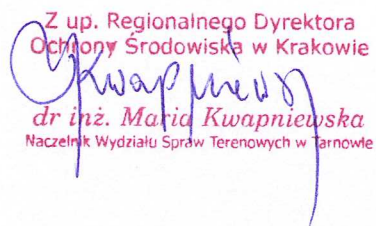 Z up. Regionalnego Dyrektora
Ochrony Środowiska w Krakowie
Kwapniewska
dr inż. Maria Kwapniewska
Naczelnik Wydziału Spraw Terenowych w Tarnowie